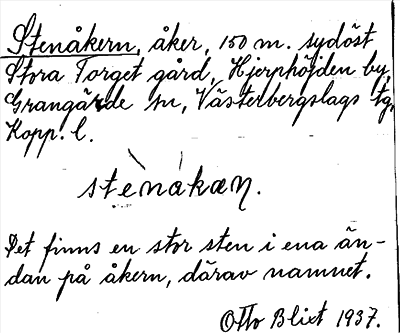 Stenåkern, åker, 150 m. sydöst
Stora Torget gård, Hjerphöjden by,
Grangärde sn, Västerbergslags tg,
Kopp. l.
stènákæɳ.
Det finns en stor sten i ena än-
dan på åkern, därav namnet.
Otto Blixt 1937.